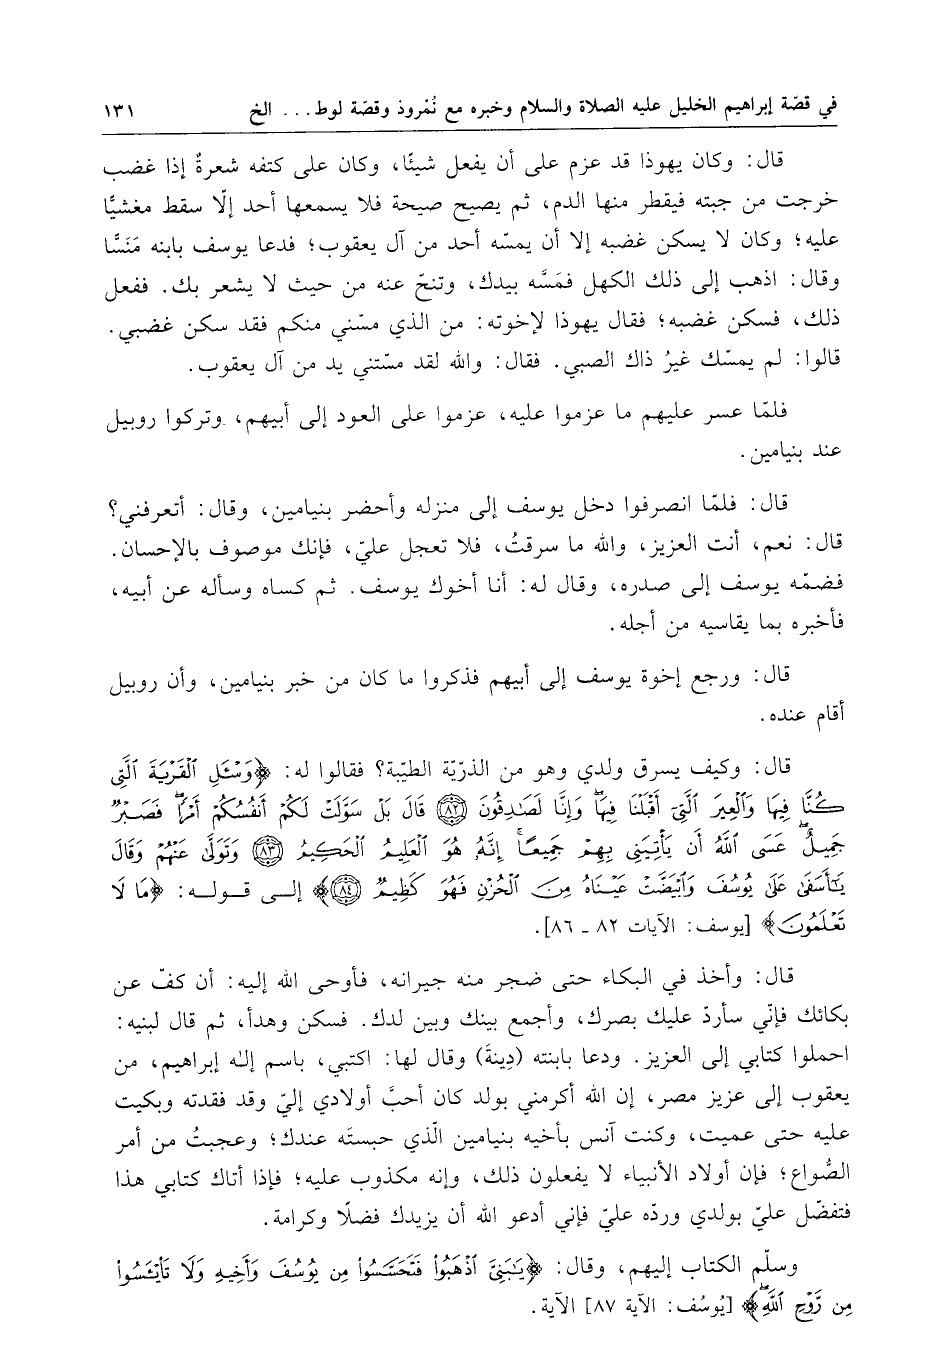 في قصّة إبراهيم الخليل عليه الصلاة والسلام وخبره مع نُمْروذ وقصّة لوط... الخ ١٣١
قال: وكان يهوذا قد عزم على أن يفعل شيئًا، وكان على كتفه شعرةٌ إذا غضب
خرجت من جبته فيقطر منها الدم، ثم يصيح صيحة فلا يسمعها أحد إلّا سقط مغشيًّا
عليه؛ وكان لا يسكن غضبه إلا أن يمسّه أحد من آل يعقوب؛ فدعا يوسف بابنه مَنَسَّا
وقال: اذهب إلى ذلك الكهل فمَسَّه بيدك، وتنحّ عنه من حيث لا يشعر بك. ففعل
ذلك، فسكن غضبه؛ فقال يهوذا لإخوته: من الذي مسّني منكم فقد سكن غضبي.
قالوا: لم يمسّك غيرُ ذاك الصبي. فقال: والله لقد مسّتني يد من آل يعقوب.
فلمّا عسر عليهم ما عزموا عليه، عزموا على العود إلى أبيهم، وتركوا روبيل
عند بنيامين.
قال: فلمّا انصرفوا دخل يوسف إلى منزله وأحضر بنيامين، وقال: أتعرفني؟
قال: نعم، أنت العزيز، والله ما سرقتُ، فلا تعجل عليّ، فإنك موصوف بالإحسان.
فضمّه يوسف إلى صدره، وقال له: أنا أخوك يوسف. ثم كساه وسأله عن أبيه،
فأخبره بما يقاسيه من أجله.
قال: ورجع إخوة يوسف إلى أبيهم فذكروا ما كان من خبر بنيامين، وأن روبيل
أقام عنده.
قال: وكيف يسرق ولدي وهو من الذرّية الطيّبة؟ فقالوا له: ﴿وَسْـَٔلِ ٱلْقَرْيَةَ ٱلَّتِى
كُنَّا فِيهَا وَٱلْعِيرَ ٱلَّتِىٓ أَقْبَلْنَا فِيهَاۖ وَإِنَّا لَصَٰدِقُونَ ﴿٨٢﴾ قَالَ بَلْ سَوَّلَتْ لَكُمْ أَنفُسُكُمْ أَمْرًاۖ فَصَبْرٌ
جَمِيلٌۖ عَسَى ٱللَّهُ أَن يَأْتِيَنِى بِهِمْ جَمِيعًاۚ إِنَّهُۥ هُوَ ٱلْعَلِيمُ ٱلْحَكِيمُ ﴿٨٣﴾ وَتَوَلَّىٰ عَنْهُمْ وَقَالَ
يَٰٓأَسَفَىٰ عَلَىٰ يُوسُفَ وَٱبْيَضَّتْ عَيْنَاهُ مِنَ ٱلْحُزْنِ فَهُوَ كَظِيمٌ ﴿٨٤﴾﴾ إلى قوله: ﴿مَا لَا
تَعْلَمُونَ﴾ [يوسف: الآيات ٨٢ ـ ٨٦].
قال: وأخذ في البكاء حتى ضجر منه جيرانه، فأوحى الله إليه: أن كفّ عن
بكائك فإنّي سأردّ عليك بصرك، وأجمع بينك وبين لدك. فسكن وهدأ، ثم قال لبنيه:
احملوا كتابي إلى العزيز. ودعا بابنته (دِينةَ) وقال لها: اكتبي، باسم إلٰه إبراهيم، من
يعقوب إلى عزيز مصر، إن الله أكرمني بولد كان أحبَّ أولادي إليّ وقد فقدته وبكيت
عليه حتى عميت، وكنت آنس بأخيه بنيامين الّذي حبستَه عندك؛ وعجبتُ من أمر
الصُّواع؛ فإن أولاد الأنبياء لا يفعلون ذلك، وإنه مكذوب عليه؛ فإذا أتاك كتابي هذا
فتفضّل عليّ بولدي وردّه عليّ فإني أدعو الله أن يزيدك فضلًا وكرامة.
وسلّم الكتاب إليهم، وقال: ﴿يَٰبَنِىَّ ٱذْهَبُوا۟ فَتَحَسَّسُوا۟ مِن يُوسُفَ وَأَخِيهِ وَلَا تَا۟يْـَٔسُوا۟
مِن رَّوْحِ ٱللَّهِۖ﴾ [يُوسُف: الآية ٨٧] الآية.